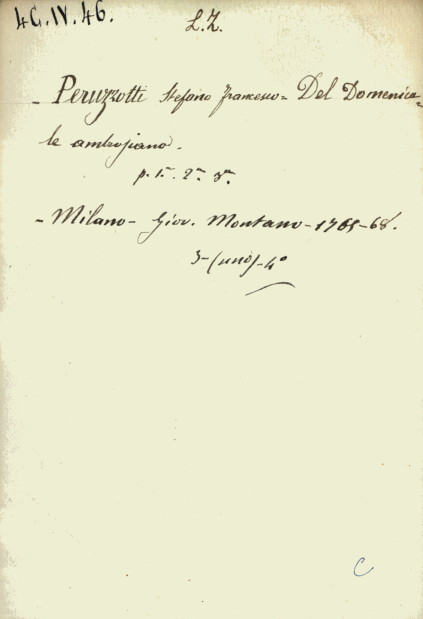 4G.IV.46.
L.Z.
- Peruzzotti Stefano Francesco = Del Domenica=
le ambrosiano.
p. 1ª. 2ª. 3ª.
- Milano - Giov. Montano - 1765-68.
3-(uno)-4º
C